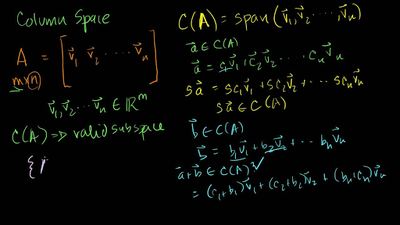 Column Space
A = [ v⃗₁ v⃗₂ ⋯ v⃗ₙ ]
m×n
v⃗₁, v⃗₂ ⋯ v⃗ₙ ∈ ℝᵐ
C(A) ⇒ valid subspace
{
C(A) = span(v⃗₁, v⃗₂ ⋯, v⃗ₙ)
a⃗ ∈ C(A)
a⃗ = c₁v⃗₁ + c₂v⃗₂ + ⋯ cₙv⃗ₙ
sa⃗ = sc₁v⃗₁ + sc₂v⃗₂ + ⋯ scₙv⃗ₙ
sa⃗ ∈ C(A)
b⃗ ∈ C(A)
b⃗ = b₁v⃗₁ + b₂v⃗₂ + ⋯ bₙv⃗ₙ
a⃗+b⃗ ∈ C(A)? ✓
= (c₁+b₁)v⃗₁ + (c₂+b₂)v⃗₂ + (bₙ+cₙ)v⃗ₙ